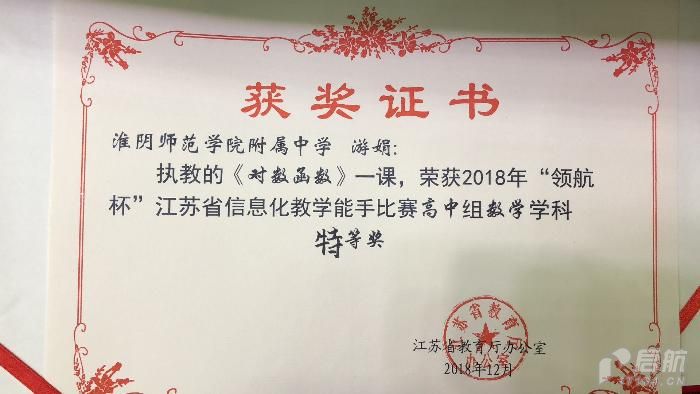 获奖证书
淮阴师范学院附属中学 游娟：
执教的《对数函数》一课，荣获2018年“领航
杯”江苏省信息化教学能手比赛高中组数学学科
特等奖
江苏省教育厅
办公室
江苏省教育厅办公室
2018年12月
启航